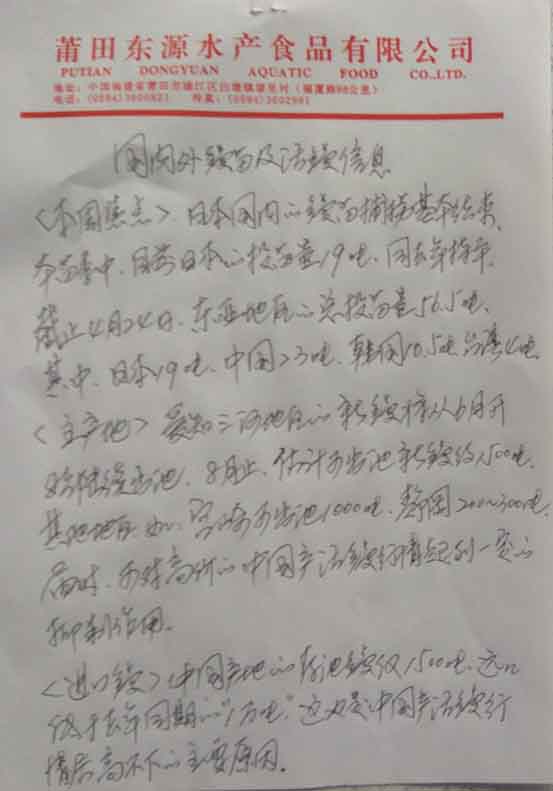 莆田东源水产食品有限公司
PUTIAN DONGYUAN AQUATIC FOOD CO.,LTD.
地址：中国福建省莆田市涵江区白塘镇 村（福厦路98公里）
电话：(0594)3600821 传真：(0594)3602981
国内外鳗苗及活鳗信息
〈本国焦点〉日本国内的鳗苗捕捞基本结束，
今苗季中，目前日本的投苗量19吨，同去年持平，
截止4月24日，东亚地区的总投苗量56.5吨，
其中，日本19吨，中国23吨，韩国10.5吨，台湾4吨。
〈主产地〉爱知三河地区的新鳗将从6月开
始陆续出池，8月止，估计可出池新鳗约1500吨，
其他地区如：宫崎可出池1000吨，静冈200~300吨，
届时，可对高价的中国产活鳗行情起到一定的
抑制作用。
〈进口鳗〉中国产地的存池鳗仅1500吨，远
低于去年同期的“1万吨”，这也是中国产活鳗行
情居高不下的主要原因。